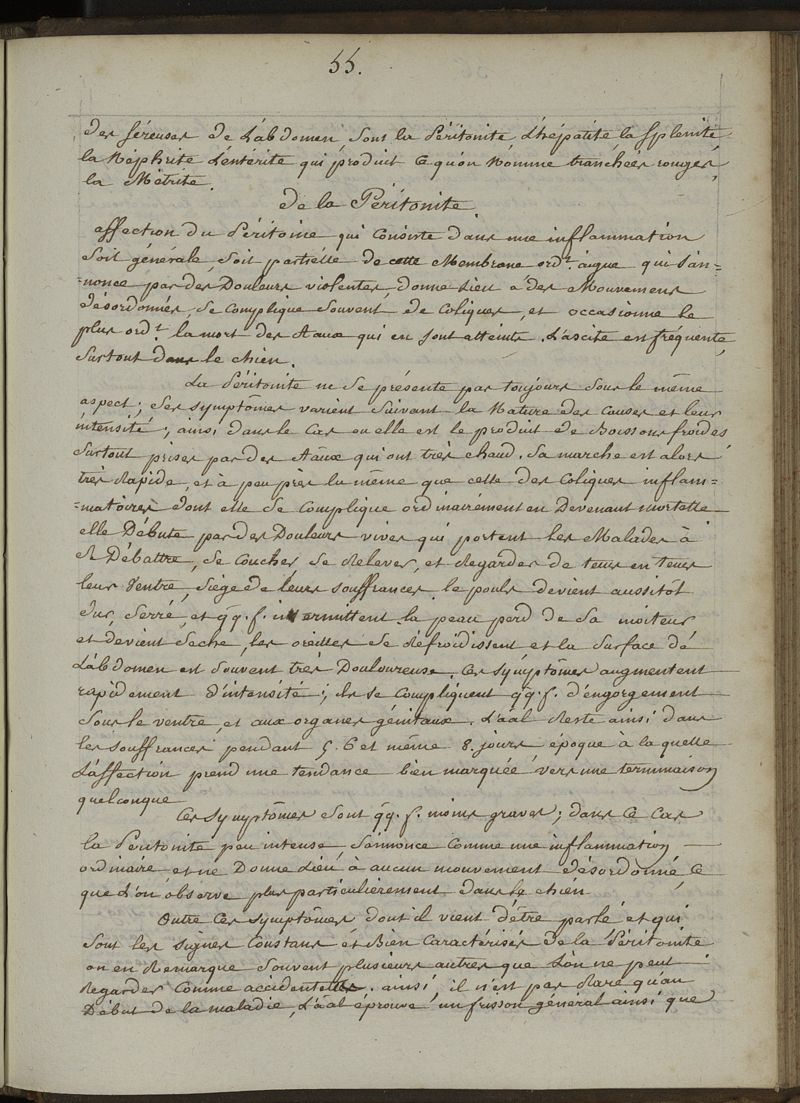 55.
des séreuses de L'abdomen, sont la Péritonite L'hépatite la Splenite
la Néphrite L'entérite qui produit Ce qu'on Nomme tranchées rouges,
la Métrite.
De la Péritonite
affection Du Péritoine qui Consiste Dans une inflammation
Soit générale, Soit partielle de cette Membrane ord.t aigue qui S'an=
=nonce par des Douleurs violentes, donne Lieu a des Mouvemens
désordonnés, Se Complique Souvent de Coliques, et occasionne le
plus ord.t la mort des A̅aux qui en sont atteints. L'ascite est fréquente,
Surtout dans le chien.
La Péritonite ne Se présente pas toujours Sous le même
aspect; Ses symptômes varient Suivant la Nature des Causes et leur
intensité; ainsi dans le Cas ou elle est le produit de Boissons froides
Surtout prises par des A̅aux qui ont très chaud. Sa marche est alors
très Rapide, et à peu près la même que celle des Coliques inflam=
=matoires dont elle Se Complique ordinairement en Devenant mortelle
elle Débute par des Douleurs vives qui portent les Malades à
Se Débattre, Se Coucher Se Relever, et Regarder de tems en tems
leur Ventre, Siège de leurs souffrances, le pouls devient aussitôt
dur, Serré, et q̅q. f. intermittent la peau perd de Sa moiteur
et devient Seche, les oreilles Se Refroidissent et la Surface de
L'abdomen est Souvent très Douloureuse. Ces symptômes augmentent
rapidement d'intensité; ils se Compliquent q̅q. f. d'engorgement
Sous le ventre, et aux organes génitaux. L'a̅al Reste ainsi dans
les souffrances pendant 5. 6 et même 8. jours époque à la quelle
L'affection prend une tendance bien marquée vers une terminaison
quelconque
Ces Symptômes Sont q̅q. f. moins graves; dans Ce Cas
la Péritonite peu intense S'annonce Comme une inflammation
ordinaire et ne Donne Lieu à aucun mouvement désordonné, Ce
que L'on observe plus particulièrement dans le chien
Outre Ces symptômes dont il vient d'être parlé et qui
Sont les signes Constans et Bien Caractérisés de la Péritonite
on en Remarque Souvent plusieurs autres que L'on ne peut
Regarder Comme accidentels. ainsi il n'est pas Rare qu'au
Début de la maladie, L'a̅al éprouve un frisson général ainsi que